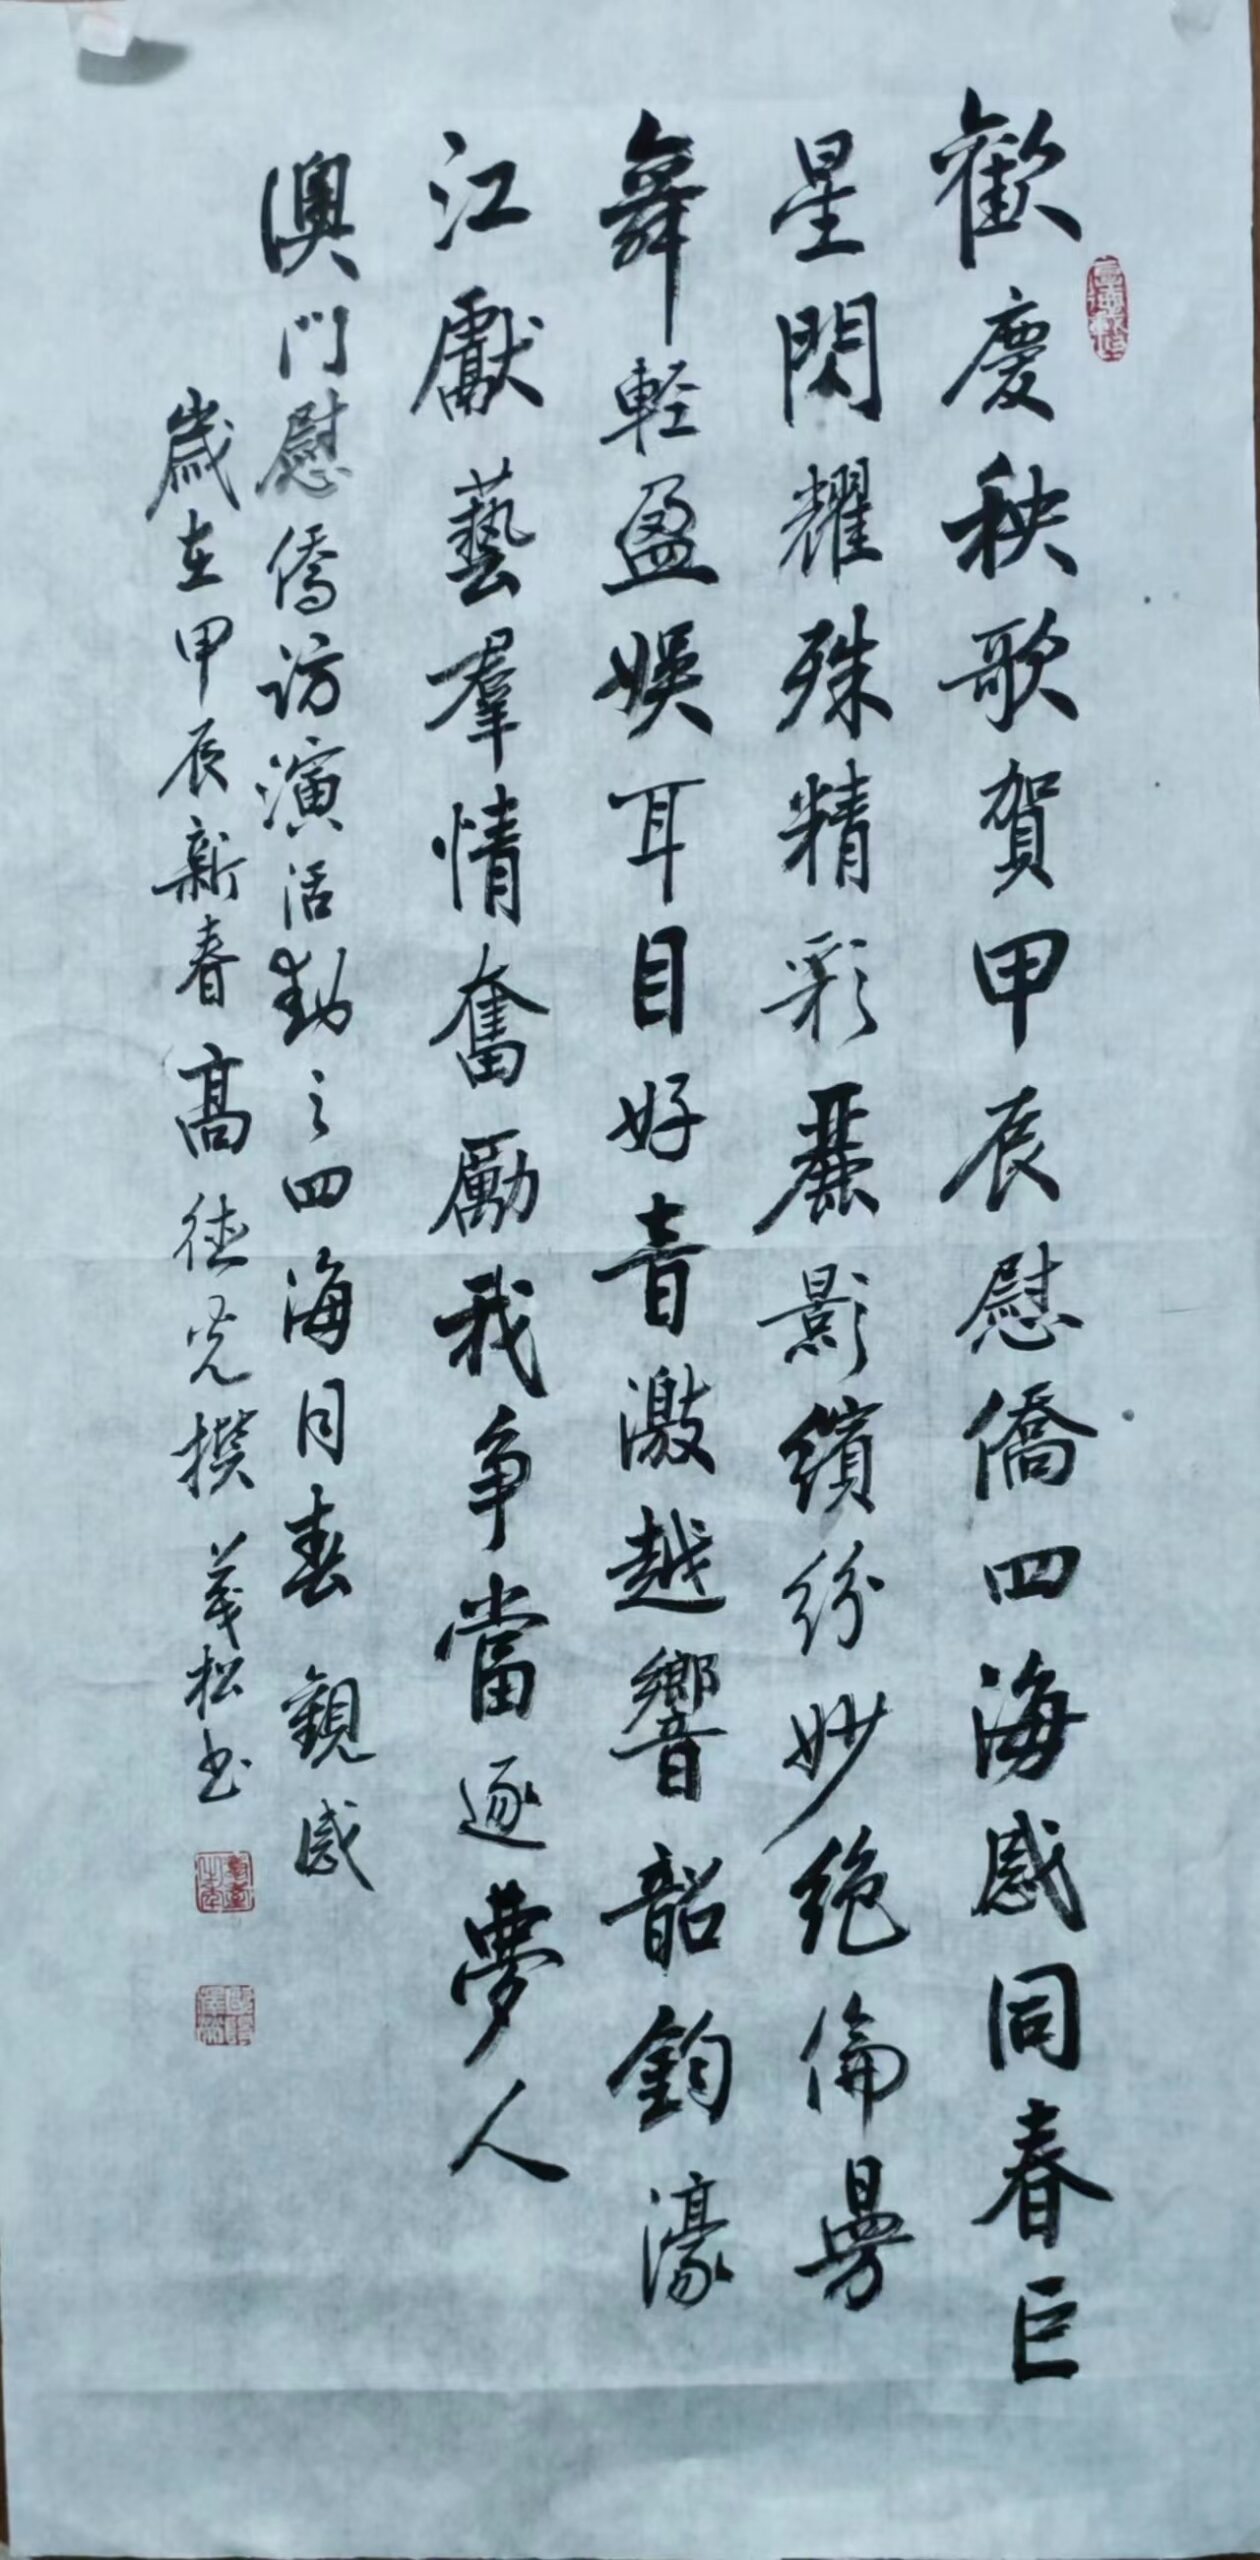 歡慶秧歌賀甲辰慰僑四海感同春巨
星閃耀殊精彩麗影繽紛妙絶倫曼
舞輕盈娛耳目好音激越響韶鈞濠
江獻藝羣情奮勵我争當逐夢人
澳門慰僑访演活動之四海同春觀感
歲在甲辰新春高德光撰 茂松书